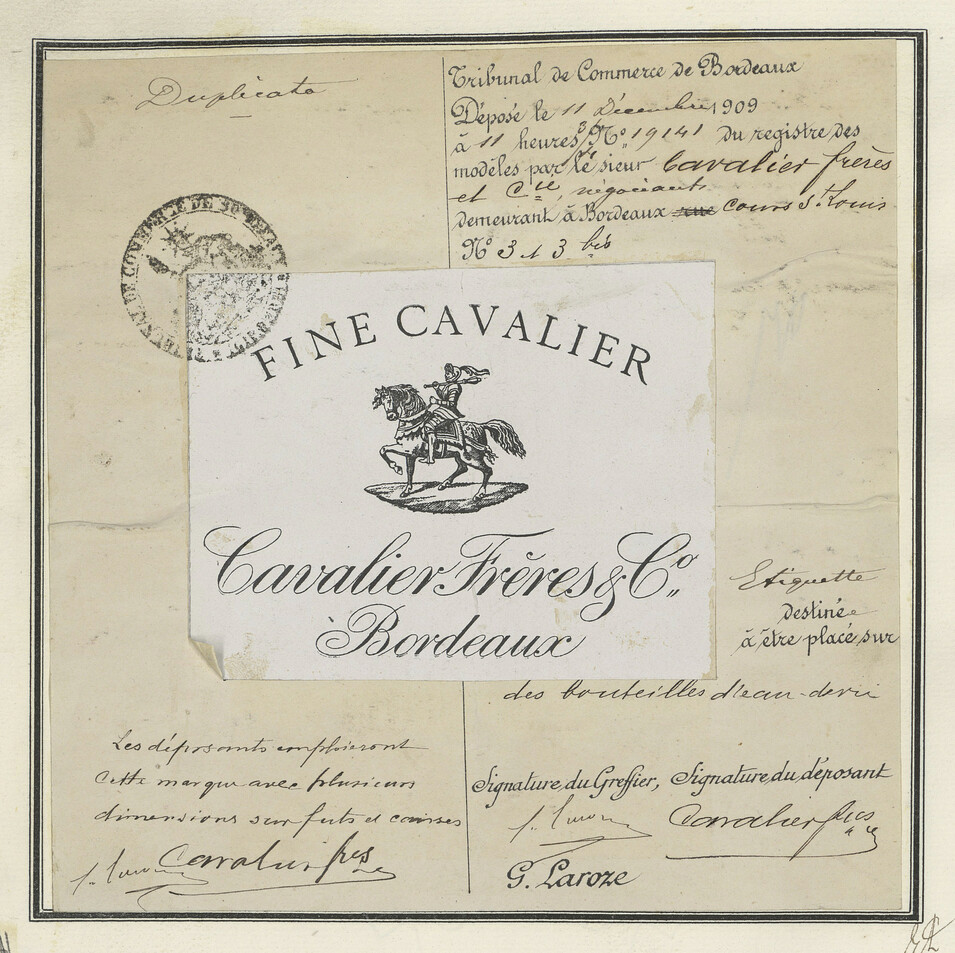 Duplicata
Tribunal de Commerce de Bordeaux
Déposé le 11 Décembre 1909
à 11 heures 3/4 No 19141 du registre des
modèles par le sieur Cavalier frères
et Cie, négociants
demeurant à Bordeaux rue cours St Louis
No 3 et 3 bis
TRIBUNAL DE COMMERCE DE BORDEAUX
FINE CAVALIER
Cavalier Frères & Co.,
Bordeaux
Etiquette
destinée
à être placé sur
des bouteilles d'eau-de-vie
Les déposants emploieront
cette marque avec plusieurs
dimensions sur futs et caisses
Cavalier fres
Signature du Greffier, Signature du déposant
Cavalier fres
G. Laroze